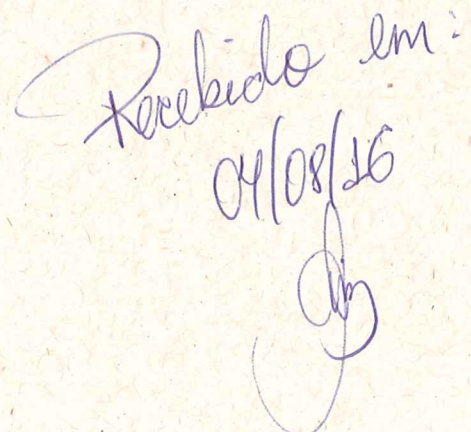 Recebido em:
04/08/16